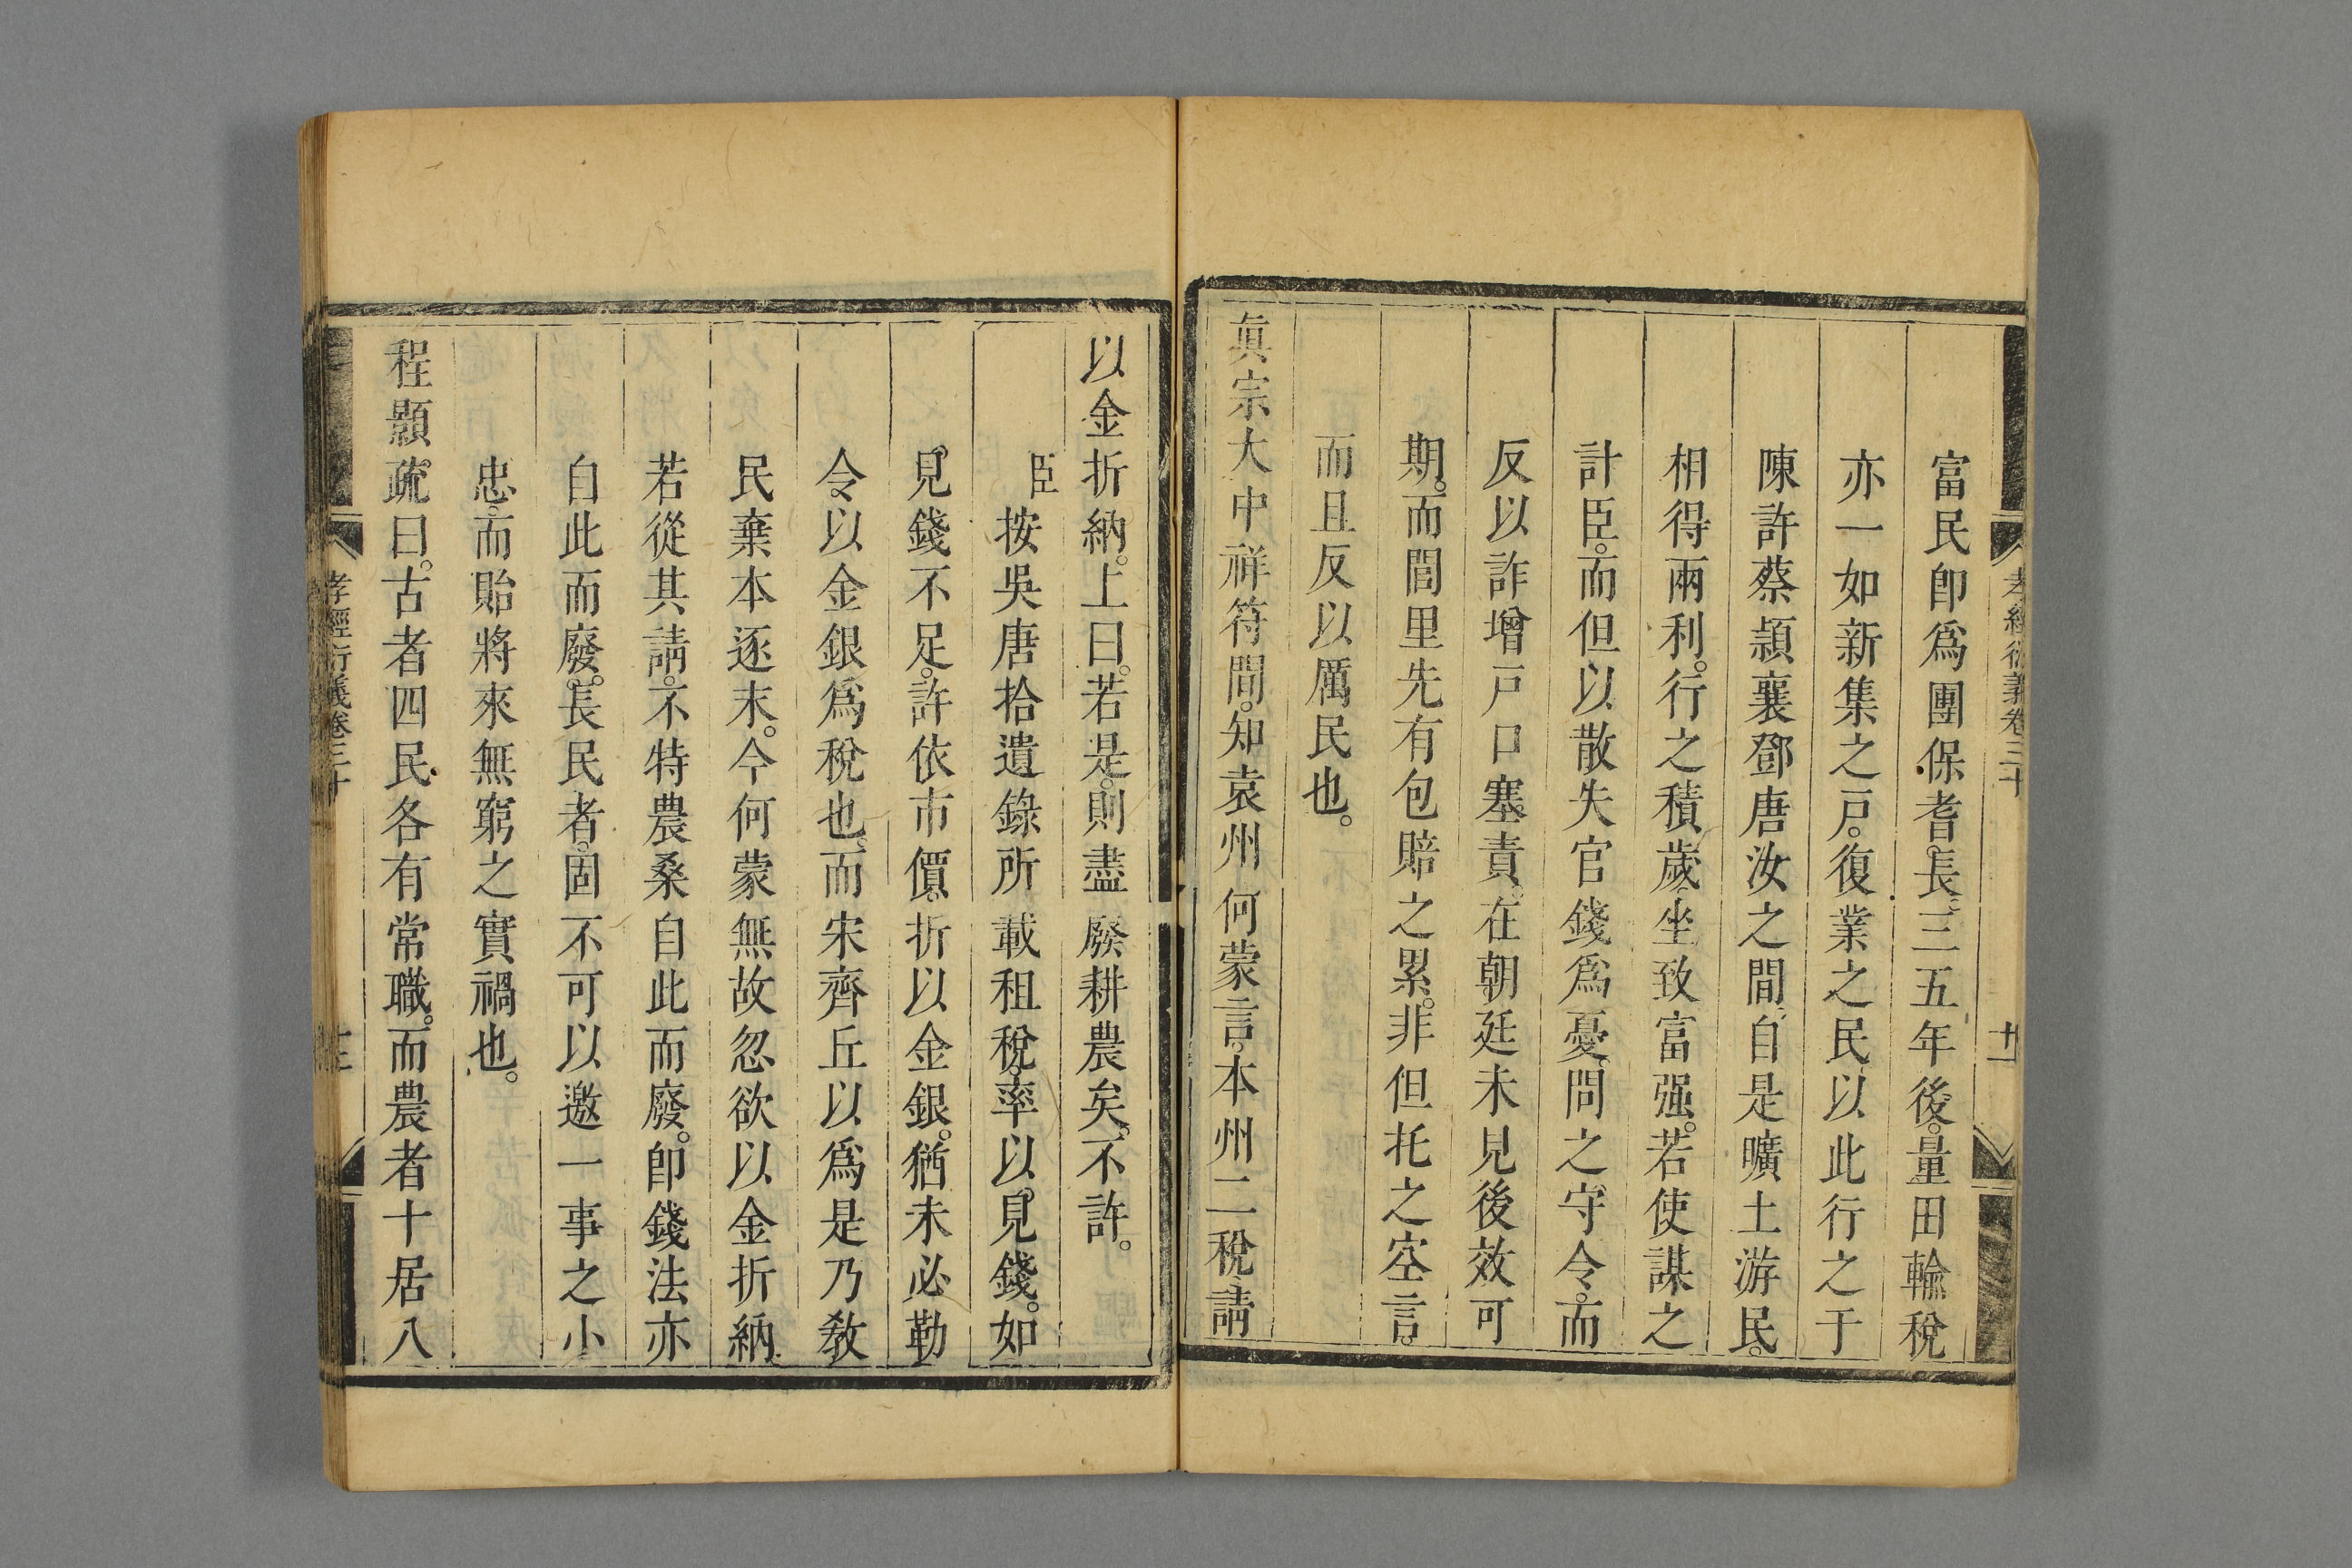 孝經衍義卷三十
十一
富民卽爲團保耆長三五年後。量田輸稅
亦一如新集之戸。復業之民以此行之于
陳許蔡潁襄鄧唐汝之間、自是曠土游民。
相得兩利。行之積歲、坐致富强。若使謀之
計臣。而但以散失官錢爲憂。問之守令。而
反以詐增戸口塞責。在朝廷未見後效可
期。而閭里先有包賠之累。非但托之空言。
而且反以厲民也。
眞宗大中祥符間。知袁州何蒙言。本州二稅、請
以金折納。上曰。若是。則盡廢耕農矣。不許。
臣按吳唐拾遺錄所載租稅。率以見錢。如
見錢不足。許依市價。折以金銀。猶未必勒
令以金銀爲稅也。而宋齊丘以爲是乃敎
民棄本逐末。今何蒙無故忽欲以金折納
若從其請。不特農桑自此而廢。卽錢法亦
自此而廢。長民者。固不可以邀一事之小
忠。而貽將來無窮之實禍也。
程顥疏曰。古者四民各有常職。而農者十居八
孝經衍義卷三十